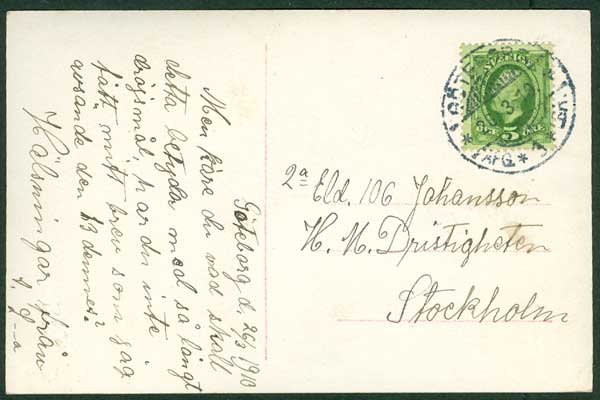 Göteborg d. 26/3 1910
Men käre du vad skall
detta betyda med så långt
dröjsmål, har du inte
fått mitt brev som jag
avsände den 13 dennes?
Hälsningar från
A. L-a
2a Eld. 106 Johansson
H. M. Dristigheten
Stockholm
SVERIGE
FEM 5 ÖRE
AFG.